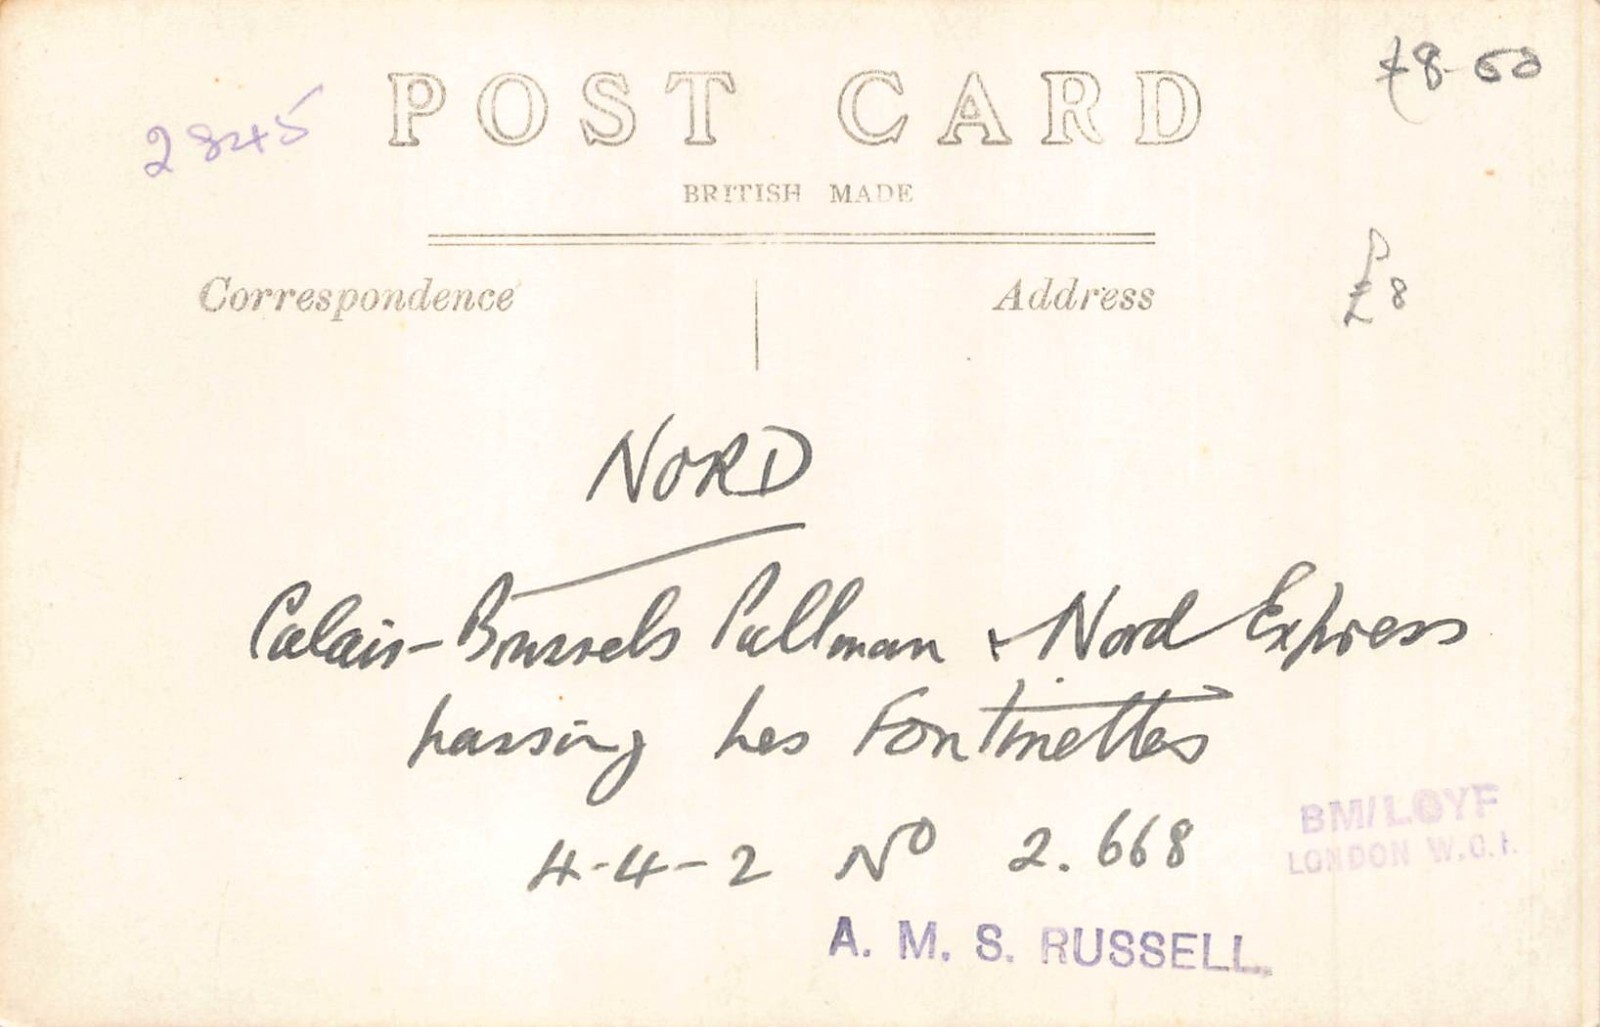 £8-50
2845
POST CARD
BRITISH MADE
Correspondence
Address
£8
NORD
Calais-Brussels Pullman + Nord Express
passing Les Fontinettes
4-4-2 No 2.668
BM/LOYF
LONDON W.C.1.
A. M. S. RUSSELL.